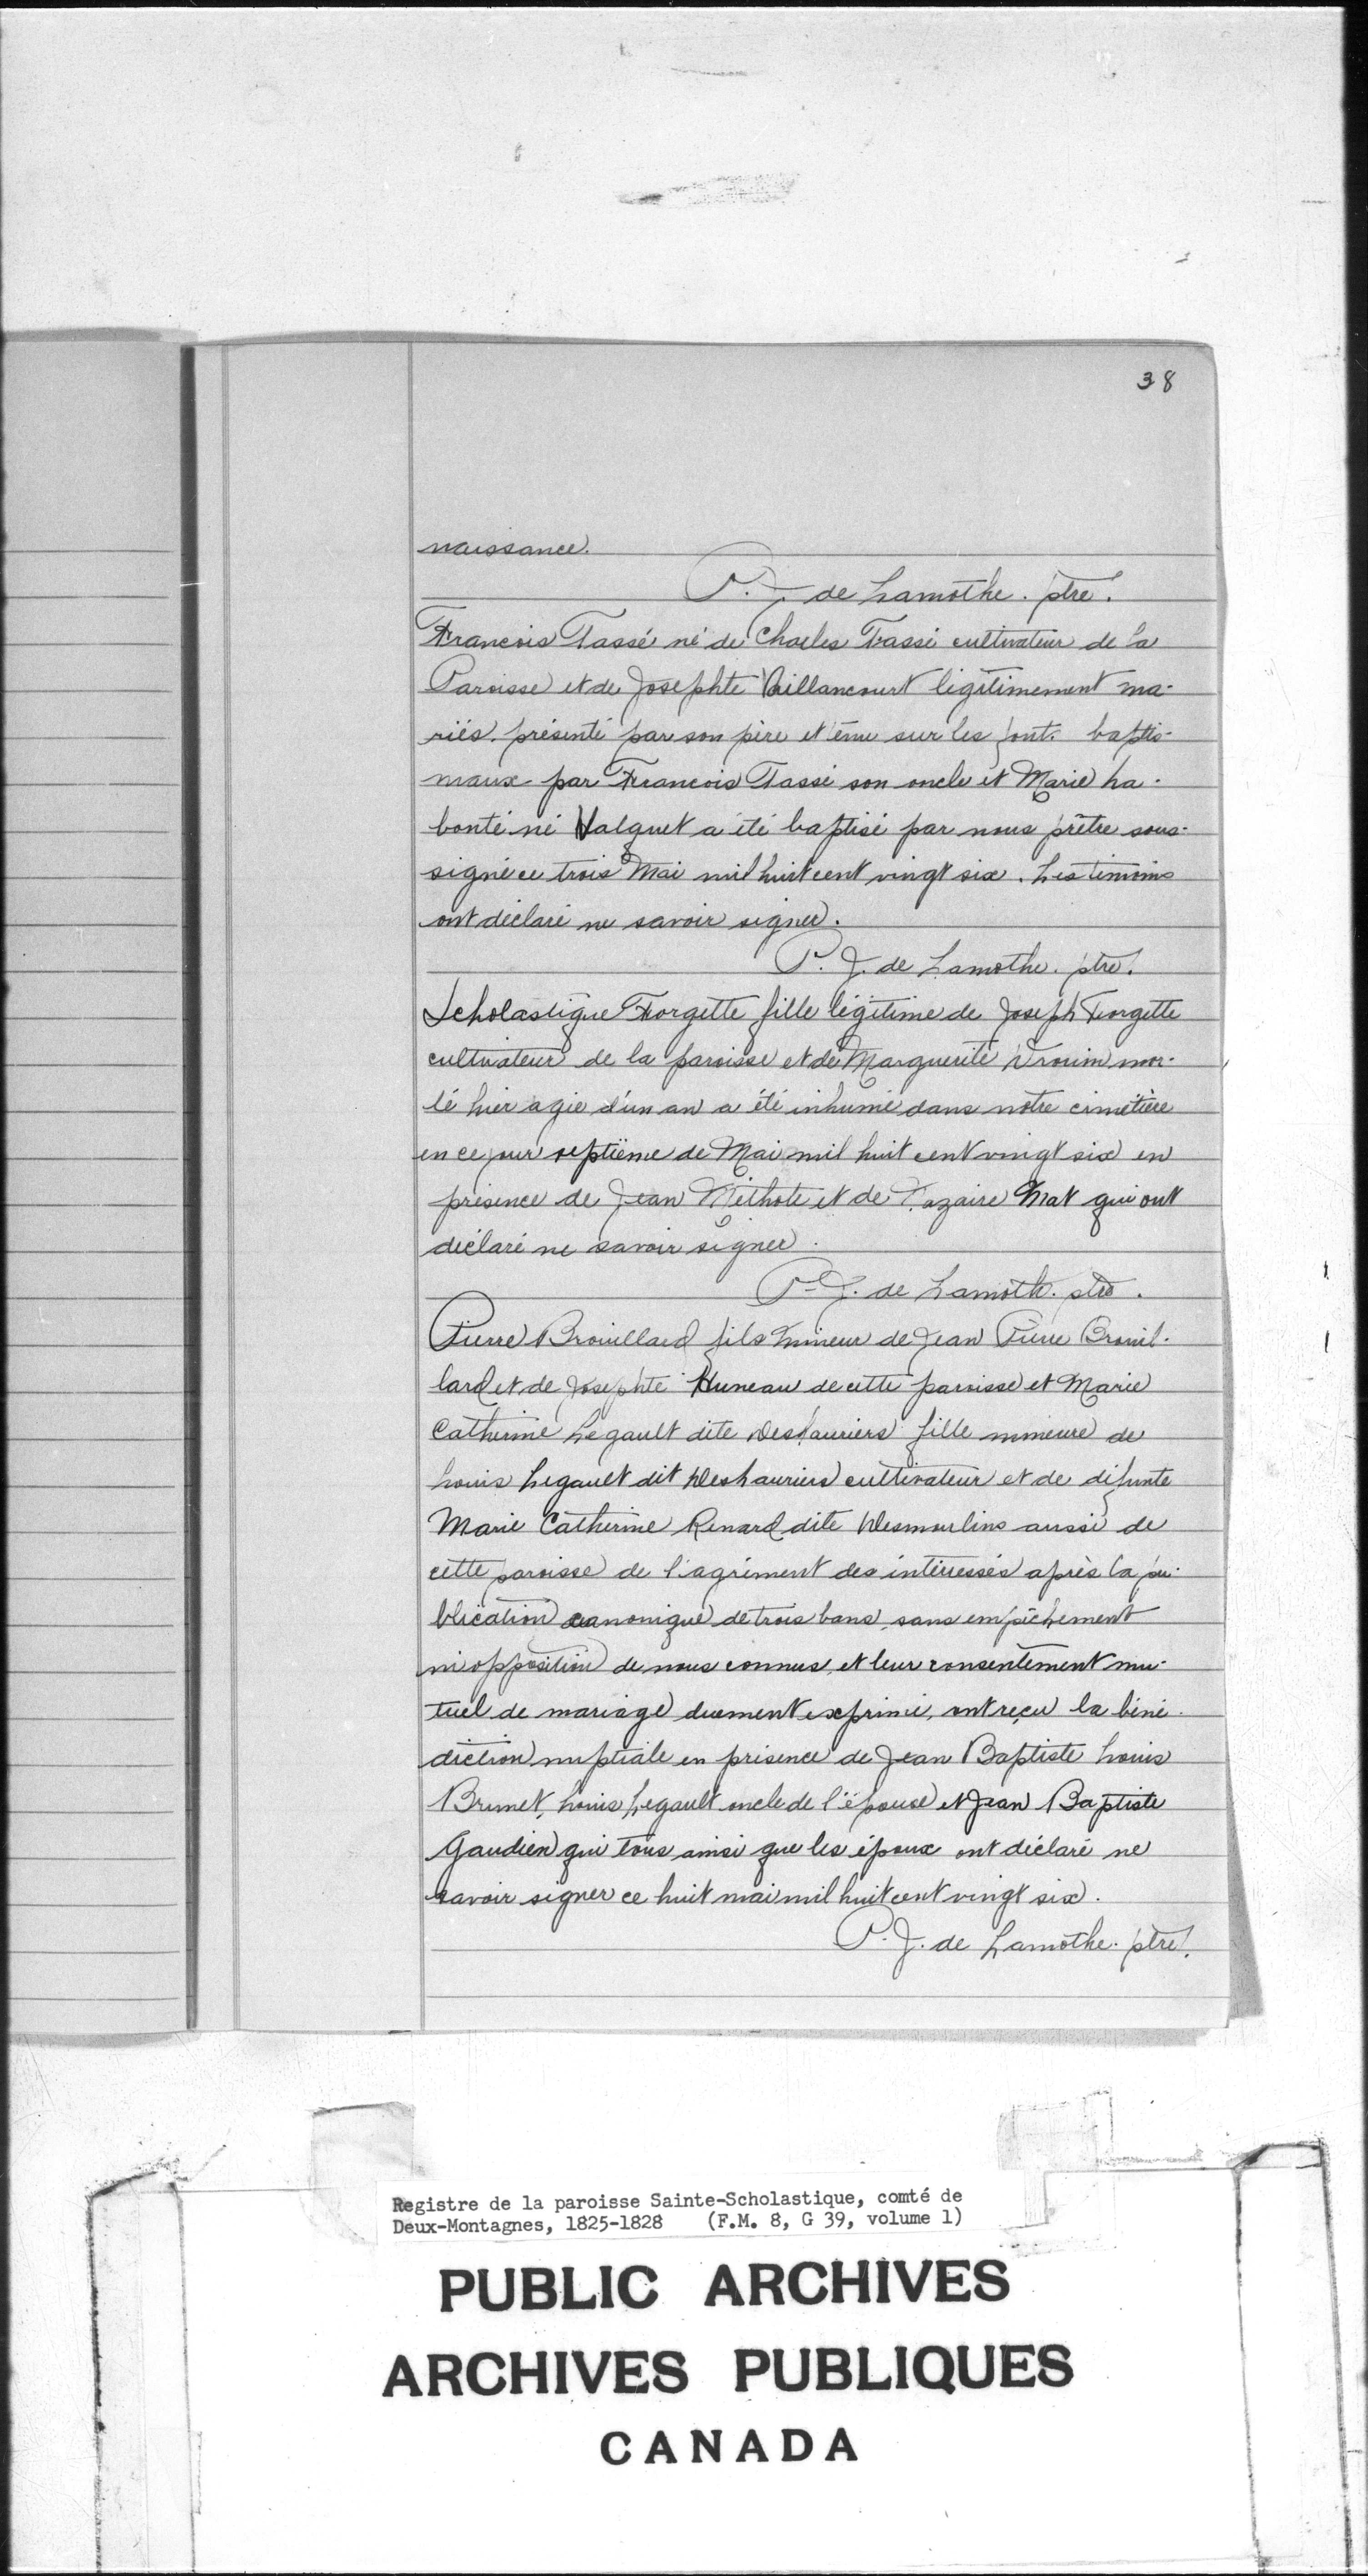 38
naissance.
P. J. de Lamothe. ptre.
Francois Tassé né de Charles Tassé cultivateur de la
Paroisse et de Josephte Vaillancourt légitimement ma-
riés. présenté par son père et tenu sur les font. baptis-
maux par Francois Tassé son oncle et Marie La-
bonté né Valquet a été baptisé par nous prêtre sous-
signé ce trois Mai mil huit cent vingt six. Les témoins
ont déclaré ne savoir signer.
P. J. de Lamothe. ptre.
Scholastique Forgette fille légitime de Joseph Forgette
cultivateur de la paroisse et de Marguerite Drouin mor-
té hier agée d'un an a été inhumé dans notre cimetière
en ce jour septième de Mai mil huit cent vingt six en
présence de Jean Méthote et de Nazaire Mat qui ont
déclaré ne savoir signer.
P. J. de Lamoth. ptre.
Pierre Brouillard fils mineur de Jean Pierre Brouil-
lard et de Josephte Huneau de cette paroisse et Marie
Catherine Legault dite Deslauriers fille mineure de
Louis Legault dit Deslauriers cultivateur et de défunte
Marie Catherine Renard dite Desmoulins aussi de
cette paroisse de l'agrément des intéressés après la pu-
blication canonique de trois bans, sans empêchement
ni opposition de nous connus, et leur consentement mu-
tuel de mariage duement exprimé, ont reçu la béné-
diction nuptiale en présence de Jean Baptiste Louis
Brunet, Louis Legault oncle de l'épouse et Jean Baptiste
Gaudien qui tous ainsi que les époux ont déclaré ne
savoir signer ce huit mai mil huit cent vingt six.
P. J. de Lamothe. ptre.
Registre de la paroisse Sainte-Scholastique, comté de
Deux-Montagnes, 1825-1828 (F.M. 8, G 39, volume 1)
PUBLIC ARCHIVES
ARCHIVES PUBLIQUES
CANADA